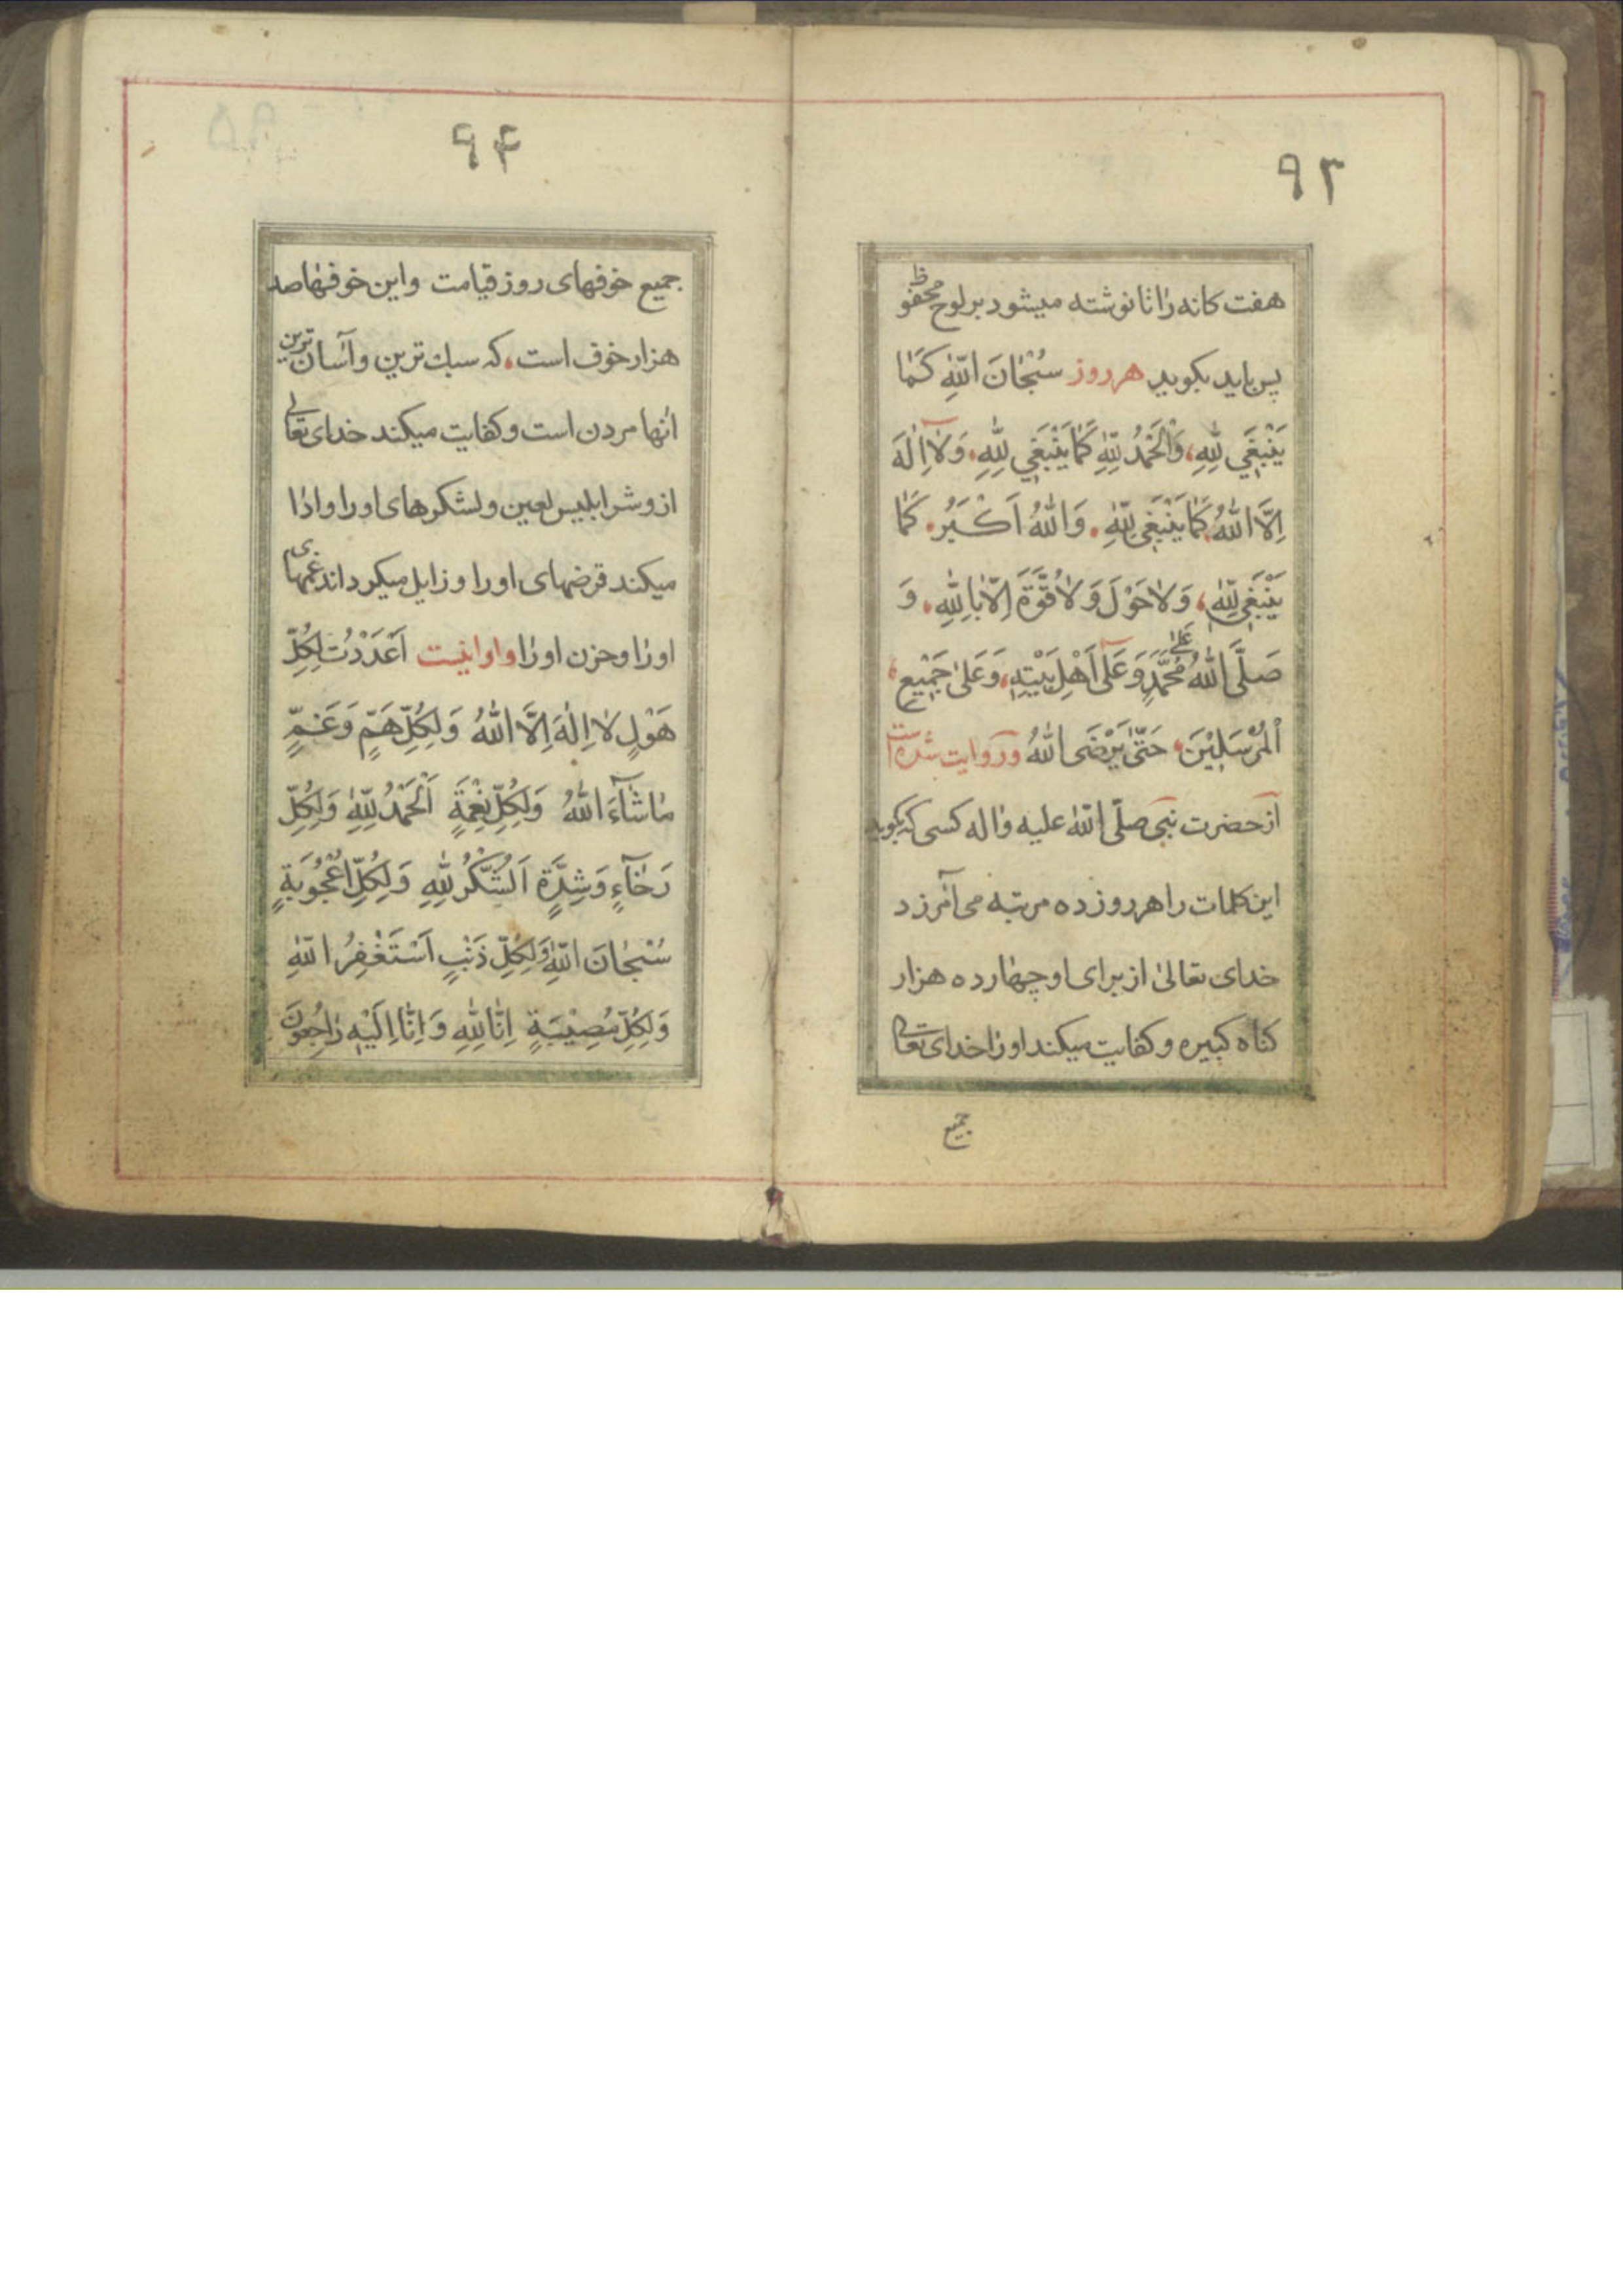 ۹۳
هفت کانه را تا نوشته میشود بر لوح محفوظ
پس باید بکوید هر روز سُبْحٰانَ اللّٰهِ کَمٰا
یَنْبَغی لِلّٰهِ، وَالْحَمْدُ لِلّٰهِ کَمٰا یَنْبَغی لِلّٰهِ، وَلٰا اِلٰهَ
اِلَّا اللّٰهُ کَمٰا یَنْبَغی لِلّٰهِ. وَاللّٰهُ اَکْبَرُ. کَمٰا
یَنْبَغی لِلّٰهِ، وَلٰا حَوْلَ وَلٰا قُوَّةَ اِلّٰا بِاللّٰهِ. وَ
صَلَّی اللّٰهُ عَلیٰ مُحَمَّدٍ وَعَلیٰ اَهْلِ بَیْتِهِ، وَعَلیٰ جَمیْعِ،
اَلْمُرْسَلیْنَ، حَتّٰی یَرْضَی اللّٰهُ و روایت شده است
از حضرت نبی صلّی اللّٰه علیه واله کسی که بکوید
این کلمات را هر روز ده مرتبه می آمرزد
خدای تعالیٰ از برای او چهٰارده هزار
کناه کبیره و کفایت میکند او را خدای تعالی
جمیع
۹۴
جمیع خوفهای روز قیامت و این خوفهٰا صد
هزار خوف است. که سبك ترین و آسان ترین
انها مردن است و کفایت میکند خدای تعالی
از و شر ابلیس لعین و لشکرهای او را و ادٰا
میکند قرضهای او را و زایل میکرداند غمهای
او رٰا و حزن او رٰا و او اینست اَعْدَدْتُ لِکُلِّ
هَوْلٍ لٰا اِلٰهَ اِلَّا اللّٰهُ وَلِکُلِّ هَمٍّ وَغَمٍّ
مٰا شٰآءَ اللّٰهُ وَلِکُلِّ نِعْمَةٍ اَلْحَمْدُ لِلّٰهِ وَلِکُلِّ
رَخٰآءٍ وَشِدَّةٍ اَلشُّکْرُ لِلّٰهِ وَلِکُلِّ اُعْجُوْبَةٍ
سُبْحٰانَ اللّٰهِ وَلِکُلِّ ذَنْبٍ اَسْتَغْفِرُ اللّٰهِ
وَلِکُلِّ مُصِیْبَةٍ اِنّٰا لِلّٰهِ وَ اِنّٰا اِلَیْهِ رٰاجِعُونَ